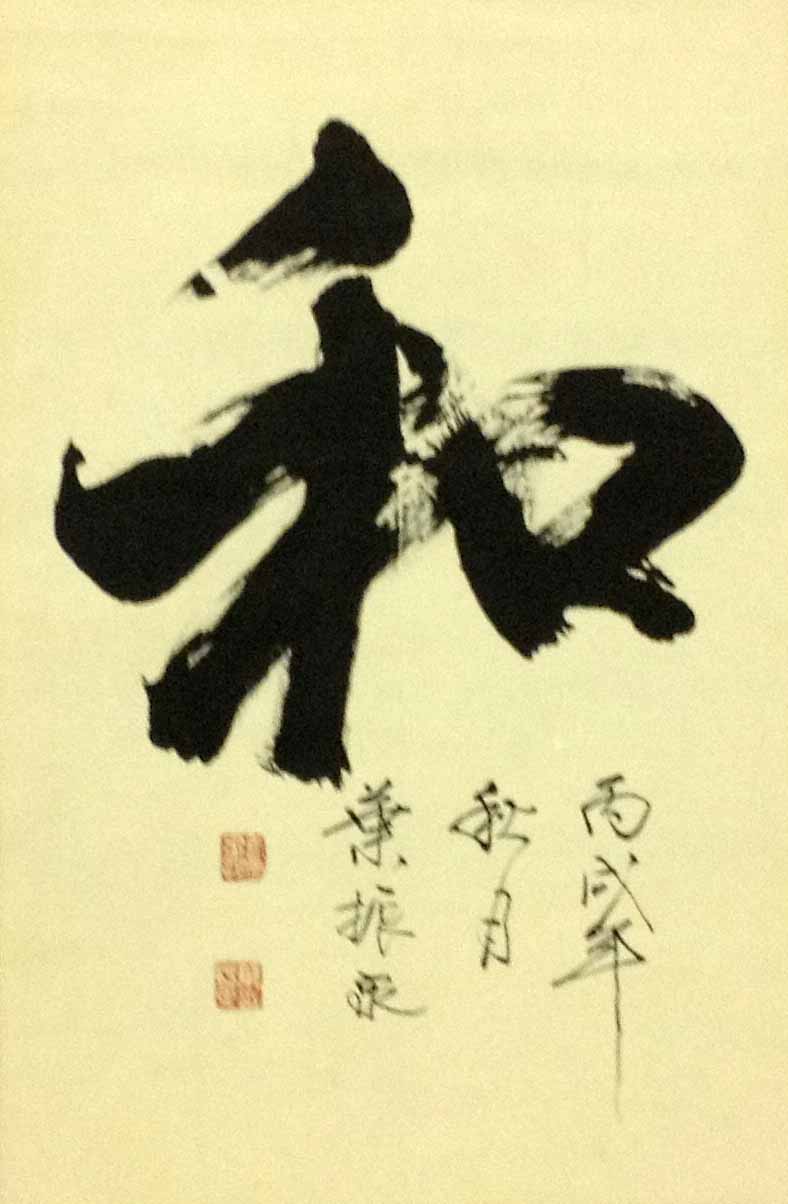 和
丙戌年
秋月
葉振